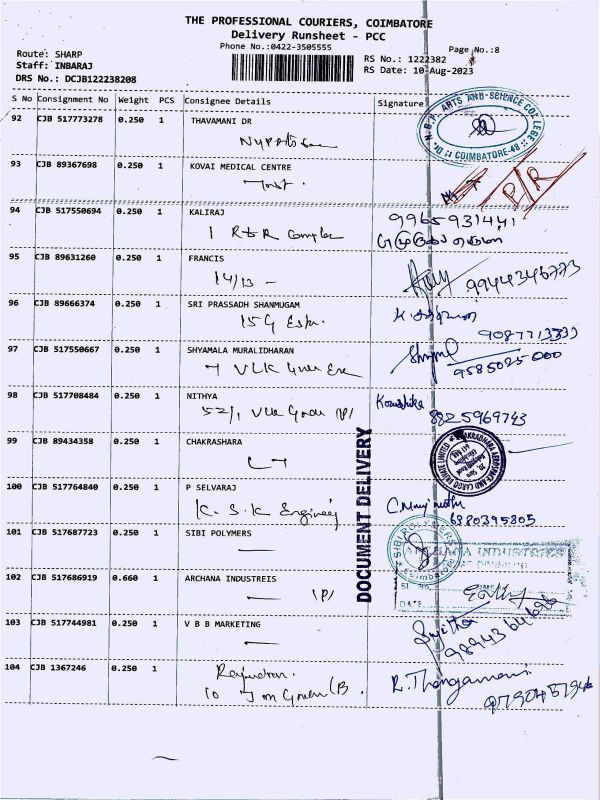 THE PROFESSIONAL COURIERS, COIMBATORE
Delivery Runsheet - PCC
Phone No.:0422-3505555
Page No.:8
Route: SHARP
Staff: INBARAJ
DRS No.: DCJB122238208
RS No.: 1222382
RS Date: 10-Aug-2023
S No Consignment No Weight PCS Consignee Details Signature
92 CJB 517773278 0.250 1 THAVAMANI DR
ARTS AND SCIENCE COLLEGE
COIMBATORE-48
93 CJB 89367698 0.250 1 KOVAI MEDICAL CENTRE
P/R
94 CJB 517550694 0.250 1 KALIRAJ
1 R&R Complex
9965931441
95 CJB 89631260 0.250 1 FRANCIS
14/13 -
9944346773
96 CJB 89666374 0.250 1 SRI PRASSADH SHANMUGAM
15 G
9087713333
97 CJB 517550667 0.250 1 SHYAMALA MURALIDHARAN
7 VLK
9585025000
98 CJB 517708484 0.250 1 NITHYA
52/1
Kowshika
8825969743
99 CJB 89434358 0.250 1 CHAKRASHARA
CHAKRADHARA AEROSPACE AND CARGO PRIVATE LIMITED
100 CJB 517764840 0.250 1 P SELVARAJ
K. S. K Engineej
6380395805
101 CJB 517687723 0.250 1 SIBI POLYMERS
SIBI POLYMERS
Coimbatore
102 CJB 517686919 0.660 1 ARCHANA INDUSTREIS
ARCHANA INDUSTRIES
DATE
103 CJB 517744981 0.250 1 V B B MARKETING
Sujitha
9894364696
104 CJB 1367246 0.250 1 Rajendran.
R. Thangamani
9790457946
DOCUMENT DELIVERY